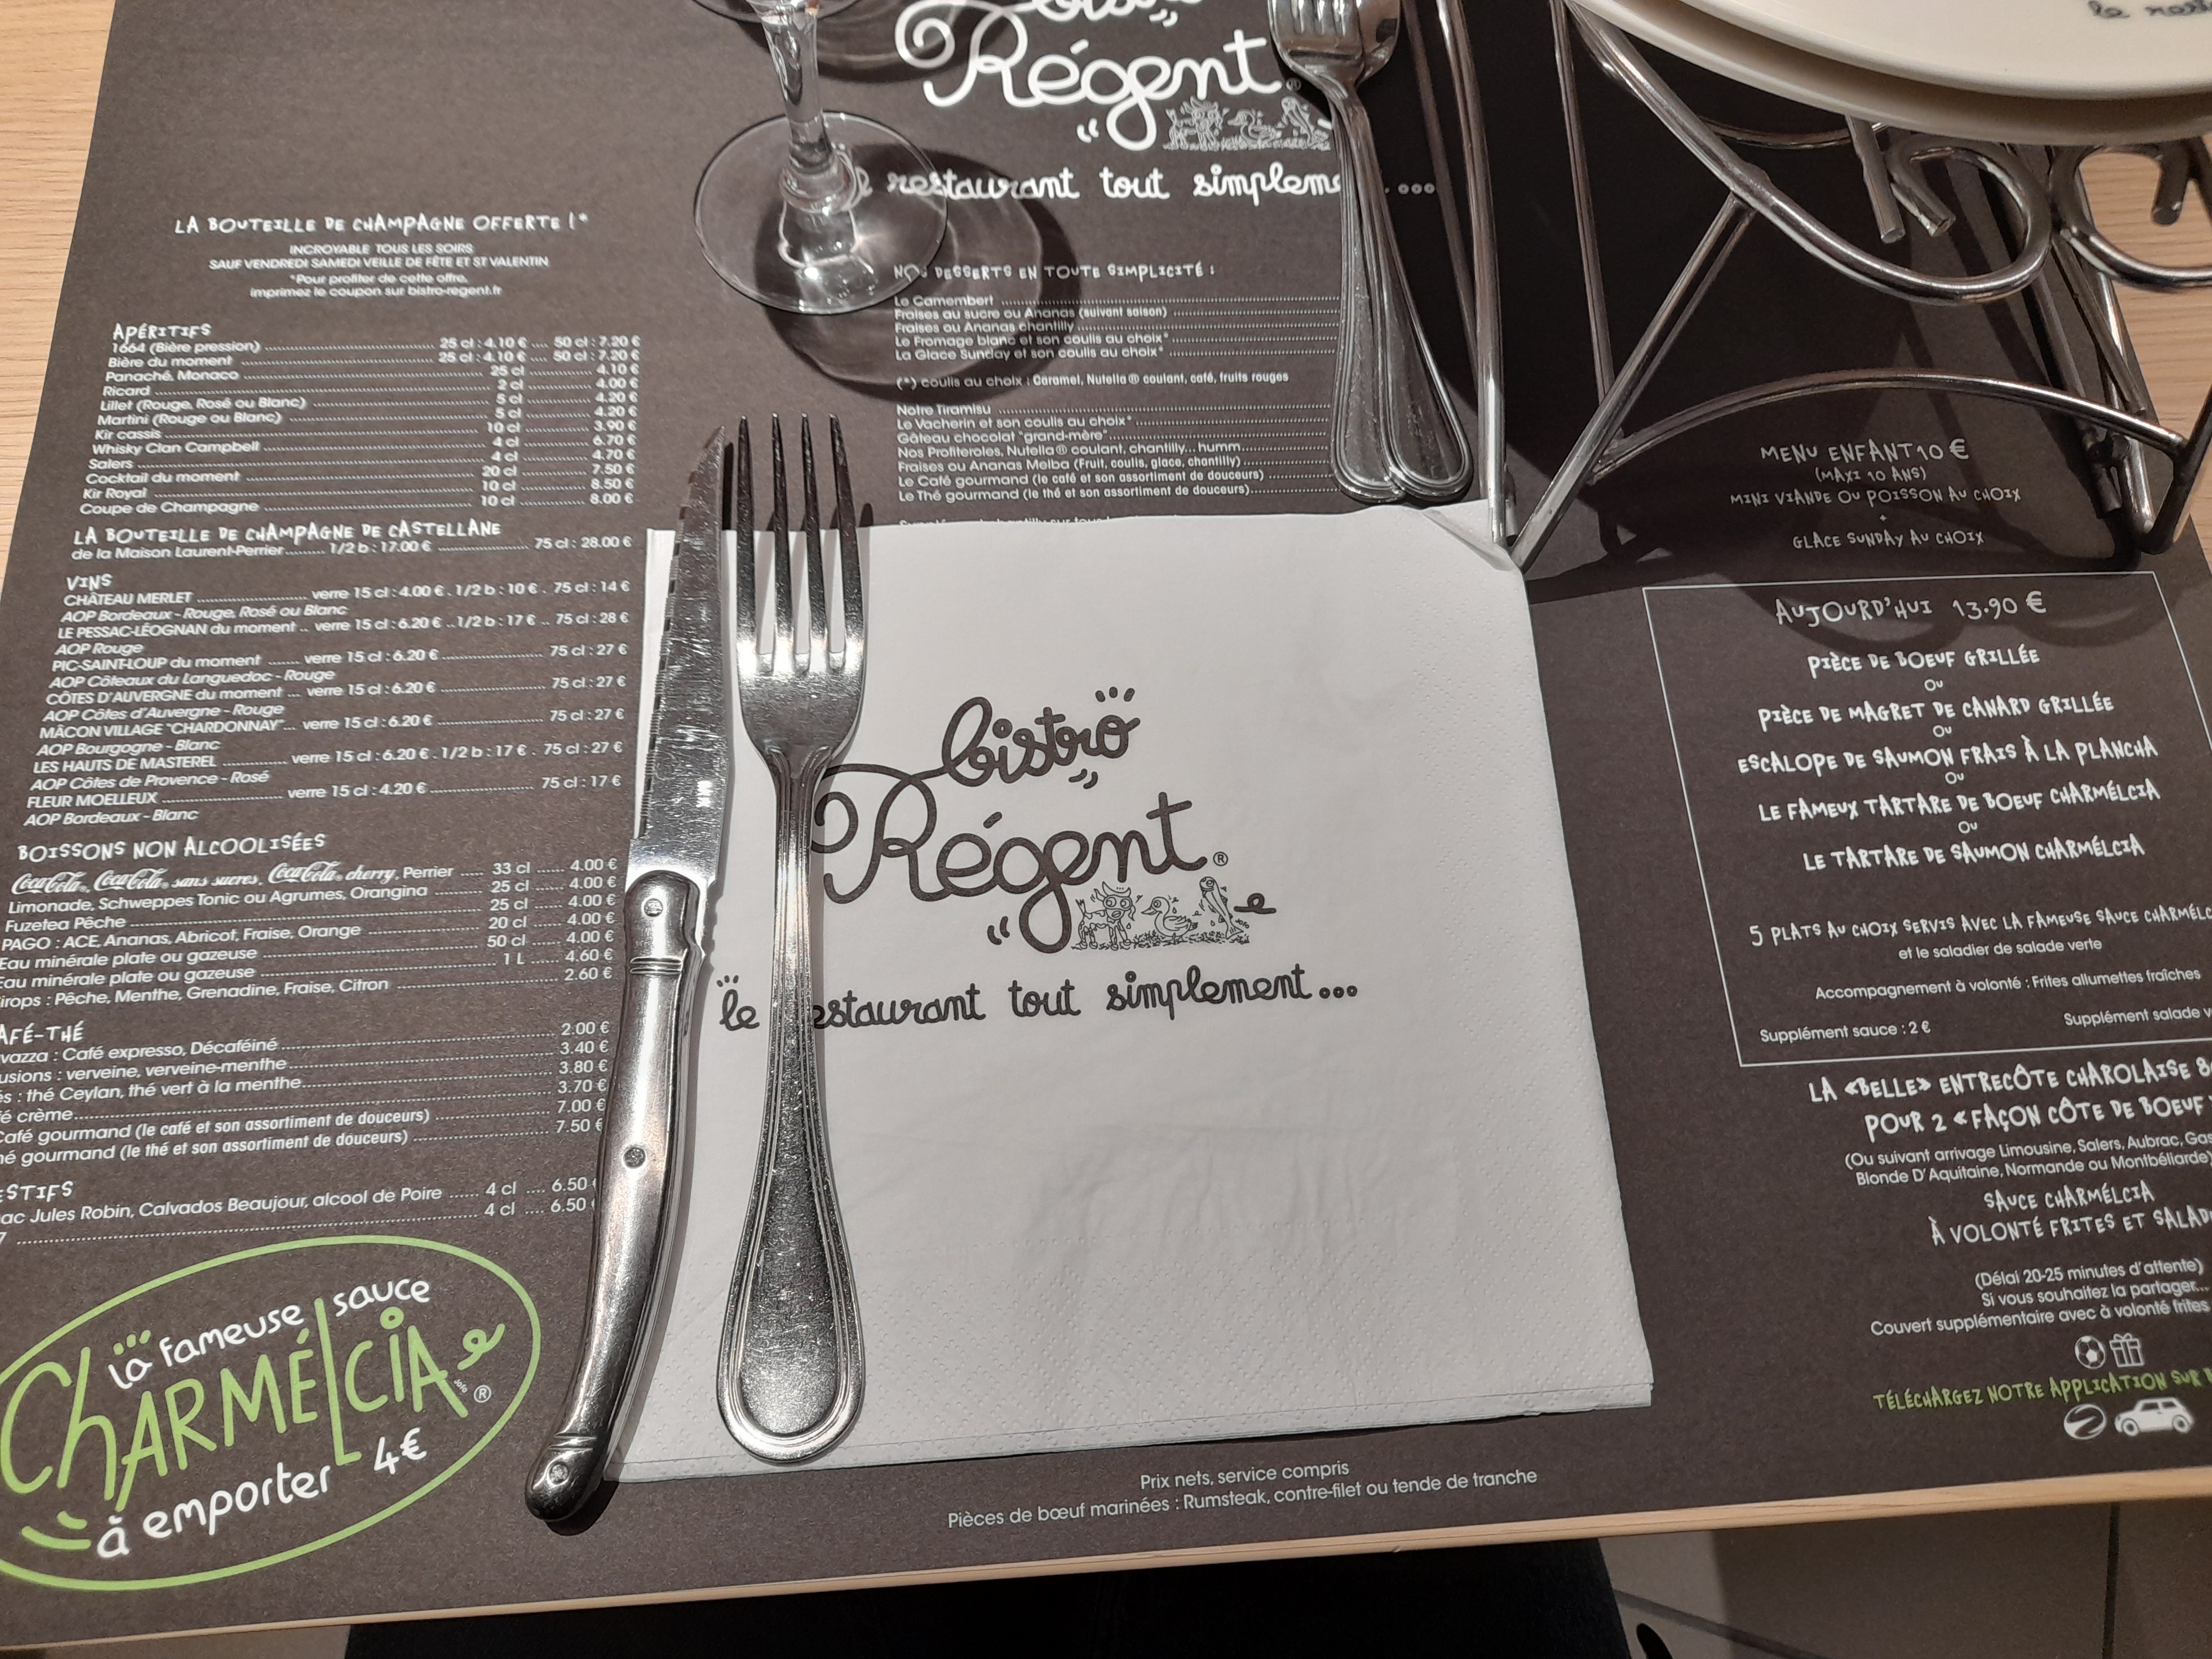 Régent
restaurant tout
le
LA BOUTEILLE DE CHAMPAGNE OFFERTE !*
INCROYABLE TOUS LES SOIRS
SAUF VENDREDI SAMEDI VEILLE DE FÊTE ET ST VALENTIN
*Pour profiter de cette offre,
imprimez le coupon sur bistro-regent.fr
APÉRITIFS
1664 (Bière pression) 25 cl : 4.10 € .... 50 cl : 7.20 €
Bière du moment 25 cl : 4.10 € .... 50 cl : 7.20 €
Panaché, Monaco 25 cl 4.10 €
Ricard 2 cl 4.00 €
Lillet (Rouge, Rosé ou Blanc) 5 cl 4.20 €
Martini (Rouge ou Blanc) 5 cl 4.20 €
Kir cassis 10 cl 3.90 €
Whisky Clan Campbell 4 cl 6.70 €
Salers 4 cl 4.70 €
Cocktail du moment 20 cl 7.50 €
Kir Royal 10 cl 8.50 €
Coupe de Champagne 10 cl 8.00 €
LA BOUTEILLE DE CHAMPAGNE DE CASTELLANE
de la Maison Laurent-Perrier 1/2 b : 17.00 € 75 cl : 28.00 €
VINS
CHÂTEAU MERLET verre 15 cl : 4.00 € . 1/2 b : 10 € . 75 cl : 14 €
AOP Bordeaux - Rouge, Rosé ou Blanc
LE PESSAC-LÉOGNAN du moment .. verre 15 cl : 6.20 € .. 1/2 b : 17 € .. 75 cl : 28 €
AOP Rouge
PIC-SAINT-LOUP du moment verre 15 cl : 6.20 € 75 cl : 27 €
AOP Côteaux du Languedoc - Rouge
CÔTES D'AUVERGNE du moment ... verre 15 cl : 6.20 € 75 cl : 27 €
AOP Côtes d'Auvergne - Rouge
MÂCON VILLAGE "CHARDONNAY" ... verre 15 cl : 6.20 € 75 cl : 27 €
AOP Bourgogne - Blanc
LES HAUTS DE MASTEREL verre 15 cl : 6.20 € . 1/2 b : 17 € . 75 cl : 27 €
AOP Côtes de Provence - Rosé
FLEUR MOELLEUX verre 15 cl : 4.20 € 75 cl : 17 €
AOP Bordeaux - Blanc
BOISSONS NON ALCOOLISÉES
Coca-Cola, Coca-Cola sans sucres, Coca-Cola cherry, Perrier 33 cl 4.00 €
Limonade, Schweppes Tonic ou Agrumes, Orangina 25 cl 4.00 €
Fuzetea Pêche 25 cl 4.00 €
PAGO : ACE, Ananas, Abricot, Fraise, Orange 20 cl 4.00 €
Eau minérale plate ou gazeuse 50 cl 4.00 €
Eau minérale plate ou gazeuse 1 L 4.60 €
irops : Pêche, Menthe, Grenadine, Fraise, Citron 2.60 €
AFÉ-THÉ
vazza : Café expresso, Décaféiné 2.00 €
usions : verveine, verveine-menthe 3.40 €
és : thé Ceylan, thé vert à la menthe 3.80 €
fé crème 3.70 €
Café gourmand (le café et son assortiment de douceurs) 7.00 €
hé gourmand (le thé et son assortiment de douceurs) 7.50 €
ESTIFS
ac Jules Robin, Calvados Beaujour, alcool de Poire 4 cl 6.50
4 cl 6.50
la fameuse sauce
CHARMÉLCIA ®
à emporter 4€
NOS DESSERTS EN TOUTE SIMPLICITÉ :
Le Camembert
Fraises au sucre ou Ananas (suivant saison)
Fraises ou Ananas chantilly
Le Fromage blanc et son coulis au choix*
La Glace Sunday et son coulis au choix*
(*) coulis au choix : Caramel, Nutella® coulant, café, fruits rouges
Notre Tiramisu
Le Vacherin et son coulis au choix*
Gâteau chocolat "grand-mère"
Nos Profiteroles, Nutella® coulant, chantilly... humm
Fraises ou Ananas Melba (Fruit, coulis, glace, chantilly)
Le Café gourmand (le café et son assortiment de douceurs)
Le Thé gourmand (le thé et son assortiment de douceurs)
bistro
Régent®
le estaurant tout simplement...
Prix nets, service compris
Pièces de bœuf marinées : Rumsteak, contre-filet ou tende de tranche
MENU ENFANT 10 €
(MAXI 10 ANS)
MINI VIANDE OU POISSON AU CHOIX
+
GLACE SUNDAY AU CHOIX
AUJOURD'HUI 13.90 €
PIÈCE DE BOEUF GRILLÉE
OU
PIÈCE DE MAGRET DE CANARD GRILLÉE
OU
ESCALOPE DE SAUMON FRAIS À LA PLANCHA
OU
LE FAMEUX TARTARE DE BOEUF CHARMÉLCIA
OU
LE TARTARE DE SAUMON CHARMÉLCIA
5 PLATS AU CHOIX SERVIS AVEC LA FAMEUSE SAUCE CHARMÉLC
et le saladier de salade verte
Accompagnement à volonté : Frites allumettes fraîches
Supplément sauce : 2 € Supplément salade v
LA «BELLE» ENTRECÔTE CHAROLAISE
POUR 2 «FAÇON CÔTE DE BOEUF
(Ou suivant arrivage Limousine, Salers, Aubrac, Gas
Blonde D'Aquitaine, Normande ou Montbéliarde)
SAUCE CHARMÉLCIA
À VOLONTÉ FRITES ET SALAD
(Délai 20-25 minutes d'attente)
Si vous souhaitez la partager...
Couvert supplémentaire avec à volonté frites
TÉLÉCHARGEZ NOTRE APPLICATION SUR